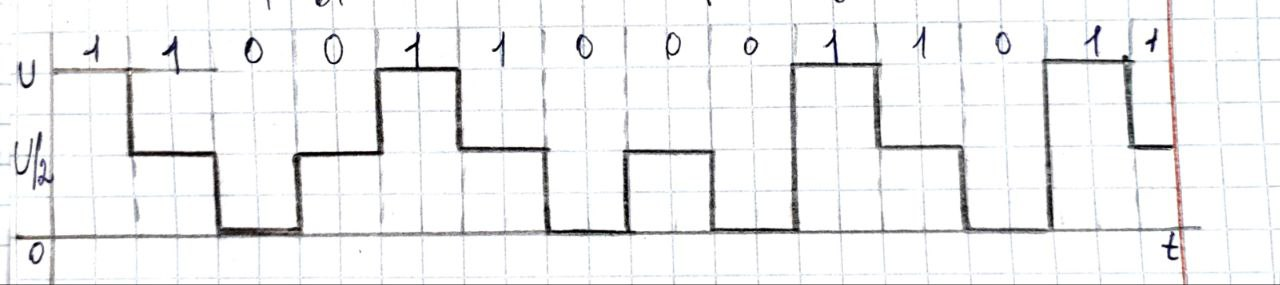 1 1 0 0 1 1 0 0 0 1 1 0 1 1
U
U/2
0
t